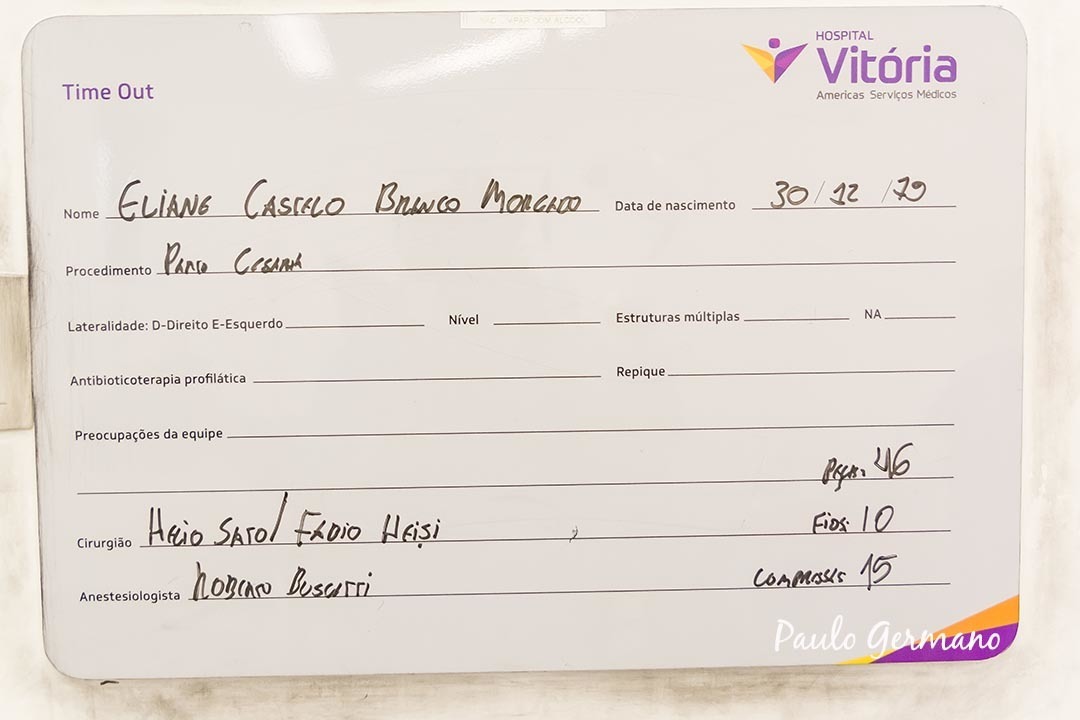 NÃO LIMPAR COM ÁLCOOL
HOSPITAL
Vitória
Americas Serviços Médicos
Time Out
Nome ELIANE CASTELO BRANCO MORGADO Data de nascimento 30/12/79
Procedimento PARTO CESARIA
Lateralidade: D-Direito E-Esquerdo Nível Estruturas múltiplas NA
Antibioticoterapia profilática Repique
Preocupações da equipe
PEÇAS 46
Cirurgião HELIO SATO/ FABIO HEISI FIOS 10
Anestesiologista ROBERTO COMPRESSAS 15
Paulo Germano